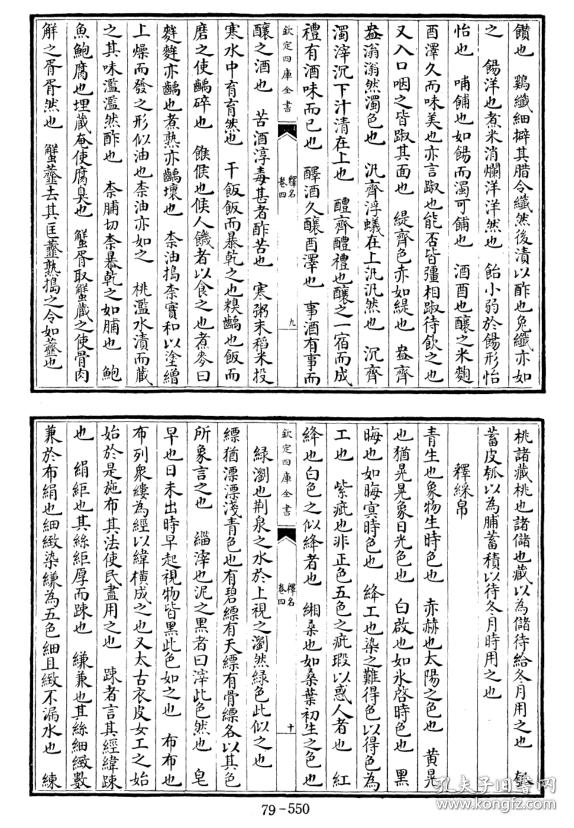 饡也　鷄纖細擗其腊令纖然後漬以酢也兔纖亦如
之　餳洋也煮米消爛洋洋然也　飴小弱於餳形怡
怡也　哺餔也如餳而濁可餔也　酒酉也釀之米麴
酉澤久而味美也亦言踧也能否皆彊相踧待飲之也
又入口咽之皆踧其面也　緹齊色亦如緹也　盎齊
盎滃滃然濁色也　汎齊浮蟻在上汎汎然也　沉齊
濁滓沉下汁清在上也　醴齊醴禮也釀之一宿而成
禮有酒味而已也　醳酒久釀酉澤也　事酒有事而
欽定四庫全書
釋名
卷四
九
釀之酒也　苦酒淳毒甚者酢苦也　寒粥末稻米投
寒水中育育然也　干飯飯而暴乾之也糗齲也飯而
磨之使齲碎也　餱候也候人饑者以食之也煮麥曰
麮麮亦齲也煮熟亦齲壞也　柰油搗柰實和以塗繒
上燥而發之形似油也柰油亦如之　桃濫水漬而藏
之其味濫濫然酢也　柰脯切柰暴乾之如脯也　鮑
魚鮑腐也埋藏奄使腐臭也　蟹胥取蟹藏之使骨肉
解之胥胥然也　蟹䪡去其匡䪡熟搗之令如䪡也
桃諸藏桃也諸儲也藏以為儲待給冬月用之也　瓠
蓄皮瓠以為脯蓄積以待冬月時用之也
釋綵帛
青生也象物生時色也　赤赫也太陽之色也　黄晃
也猶晃晃象日光色也　白啟也如氷啓時色也　黑
晦也如晦冥時色也　絳工也染之難得色以得色為
工也　紫疵也非正色五色之疵瑕以惑人者也　紅
絳也白色之似絳者也　緗桑也如桑葉初生之色也
欽定四庫全書
釋名
卷四
十
綠瀏也荆泉之水於上視之瀏然綠色此似之也
縹猶漂漂淺青色也有碧縹有天縹有骨縹各以其色
所象言之也　緇滓也泥之黑者曰滓此色然也　皂
早也日未出時早起視物皆黑此色如之也　布布也
布列衆縷為經以緯橫成之也又太古衣皮女工之始
始於是施布其法使民盡用之也　疎者言其經緯疎
也　絹䋎也其絲䋎厚而疎也　縑兼也其絲細緻數
兼於布絹也細緻染縑為五色細且緻不漏水也　練
79-550
孔夫子旧书网
www.kongfz.com